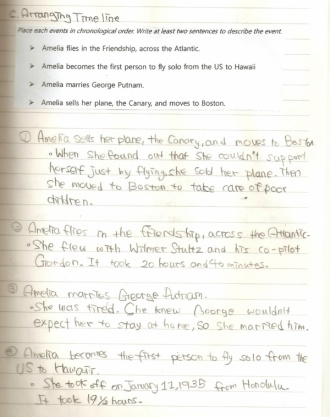 C. Arranging Time line
Place each events in chronological order. Write at least two sentences to describe the event.
➤ Amelia flies in the Friendship, across the Atlantic.
➤ Amelia becomes the first person to fly solo from the US to Hawaii
➤ Amelia marries George Putnam.
➤ Amelia sells her plane, the Canary, and moves to Boston.
① Amelia sells her plane, the Canary, and moves to Boston
• When she found out that she couldn't support
herself just by flying, she sold her plane. Then
she moved to Boston to take care of poor
children.
② Amelia flies in the friendship, across the Atlantic.
• She flew with Wilmer Stultz and his co-pilot
Gordon. It took 20 hours and 40 minutes.
③ Amelia marries George Putnam.
• She was tired. She knew George wouldn't
expect her to stay at home, so she married him.
④ Amelia becomes the first person to fly solo from the
US to Hawaii.
• She took off on January 11, 1935 from Honolulu.
It took 19½ hours.